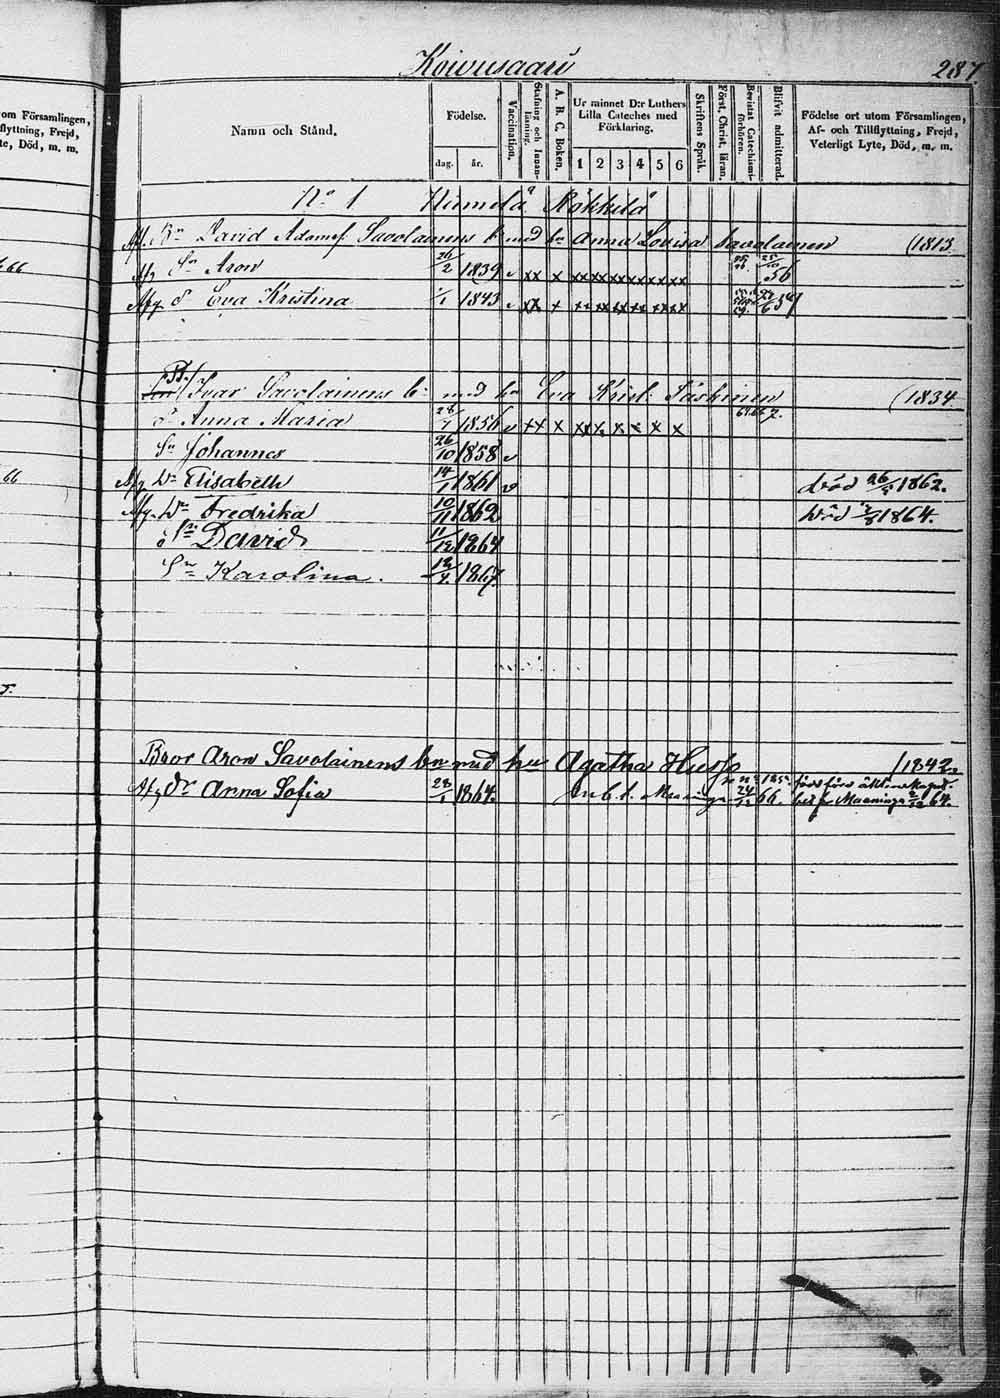 Koivusaari
287
om Församlingen,
flyttning, Frejd,
te, Död, m. m.
Namn och Stånd.
Födelse.
dag. år.
Vaccination.
Stafning och Innan-läsning.
A. B. C. Boken.
Ur minnet D:r Luthers
Lilla Cateches med
Förklaring.
1 2 3 4 5 6
Skriftens Språk.
Först. Christ. läran.
Bevistat Catechismi-förhören.
Blifvit admitterad.
Födelse ort utom Församlingen,
Af- och Tillflyttning, Frejd,
Veterligt Lyte, Död, m. m.
No 1 Humila Rökkilä
Afg. Bn David Adamsf. Savolainens bn med hu Anna Lovisa Savolainen (1813.
Afg Sn Aron 26/2 1839 v xx x xxxxxxxxxx 56
Afg. d Eva Kristina 1/1 1843 v xx x
Ivar Savolainens bn med hu Eva Krist. (1834.
d Anna Maria 28/7 1856 v xx x xx x x x x
Sn Johannes 26/10 1858 v
Afg Dr Elisabeth 14/11 1861 v död 26/5 1862.
Afg. Dr Fredrika 10/11 1862 Död 1864.
Sn David 11/12 1864
Karolina. 12/4 1867.
66
66
Bror Aron Savolainens bn med hu Agatha Huss /1842.
Afg Dr Anna Sofia 28/1 1864. 24/12 66. Maaninga 64.